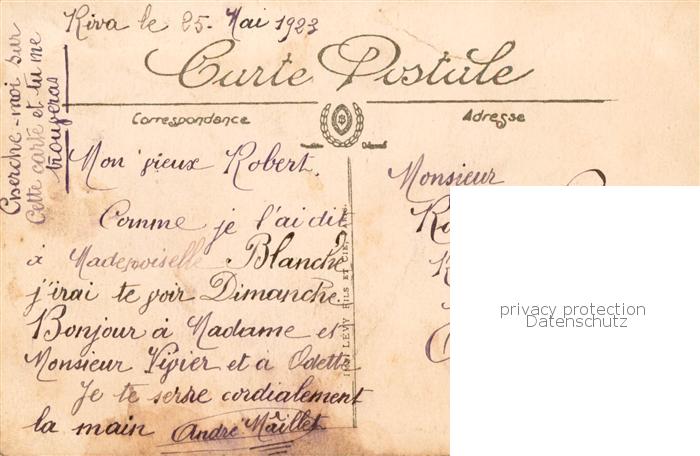 Riva le 25 Mai 1923
Cherche-moi sur
Cette carte et tu me
trouveras
Carte Postale
Correspondance
Adresse
Mon vieux Robert,
Comme je l'ai dit
à Mademoiselle Blanche
j'irai te voir Dimanche.
Bonjour à Madame et
Monsieur Vivier et à Odette
Je te serre cordialement
la main André Maillet
LÉVY FILS ET CIE, PARIS
Monsieur
privacy protection
Datenschutz